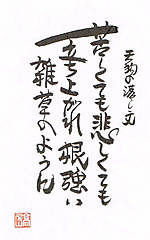 天狗の落し文
苦しくても悲しくても
立ち上がれ根強い
雑草のように